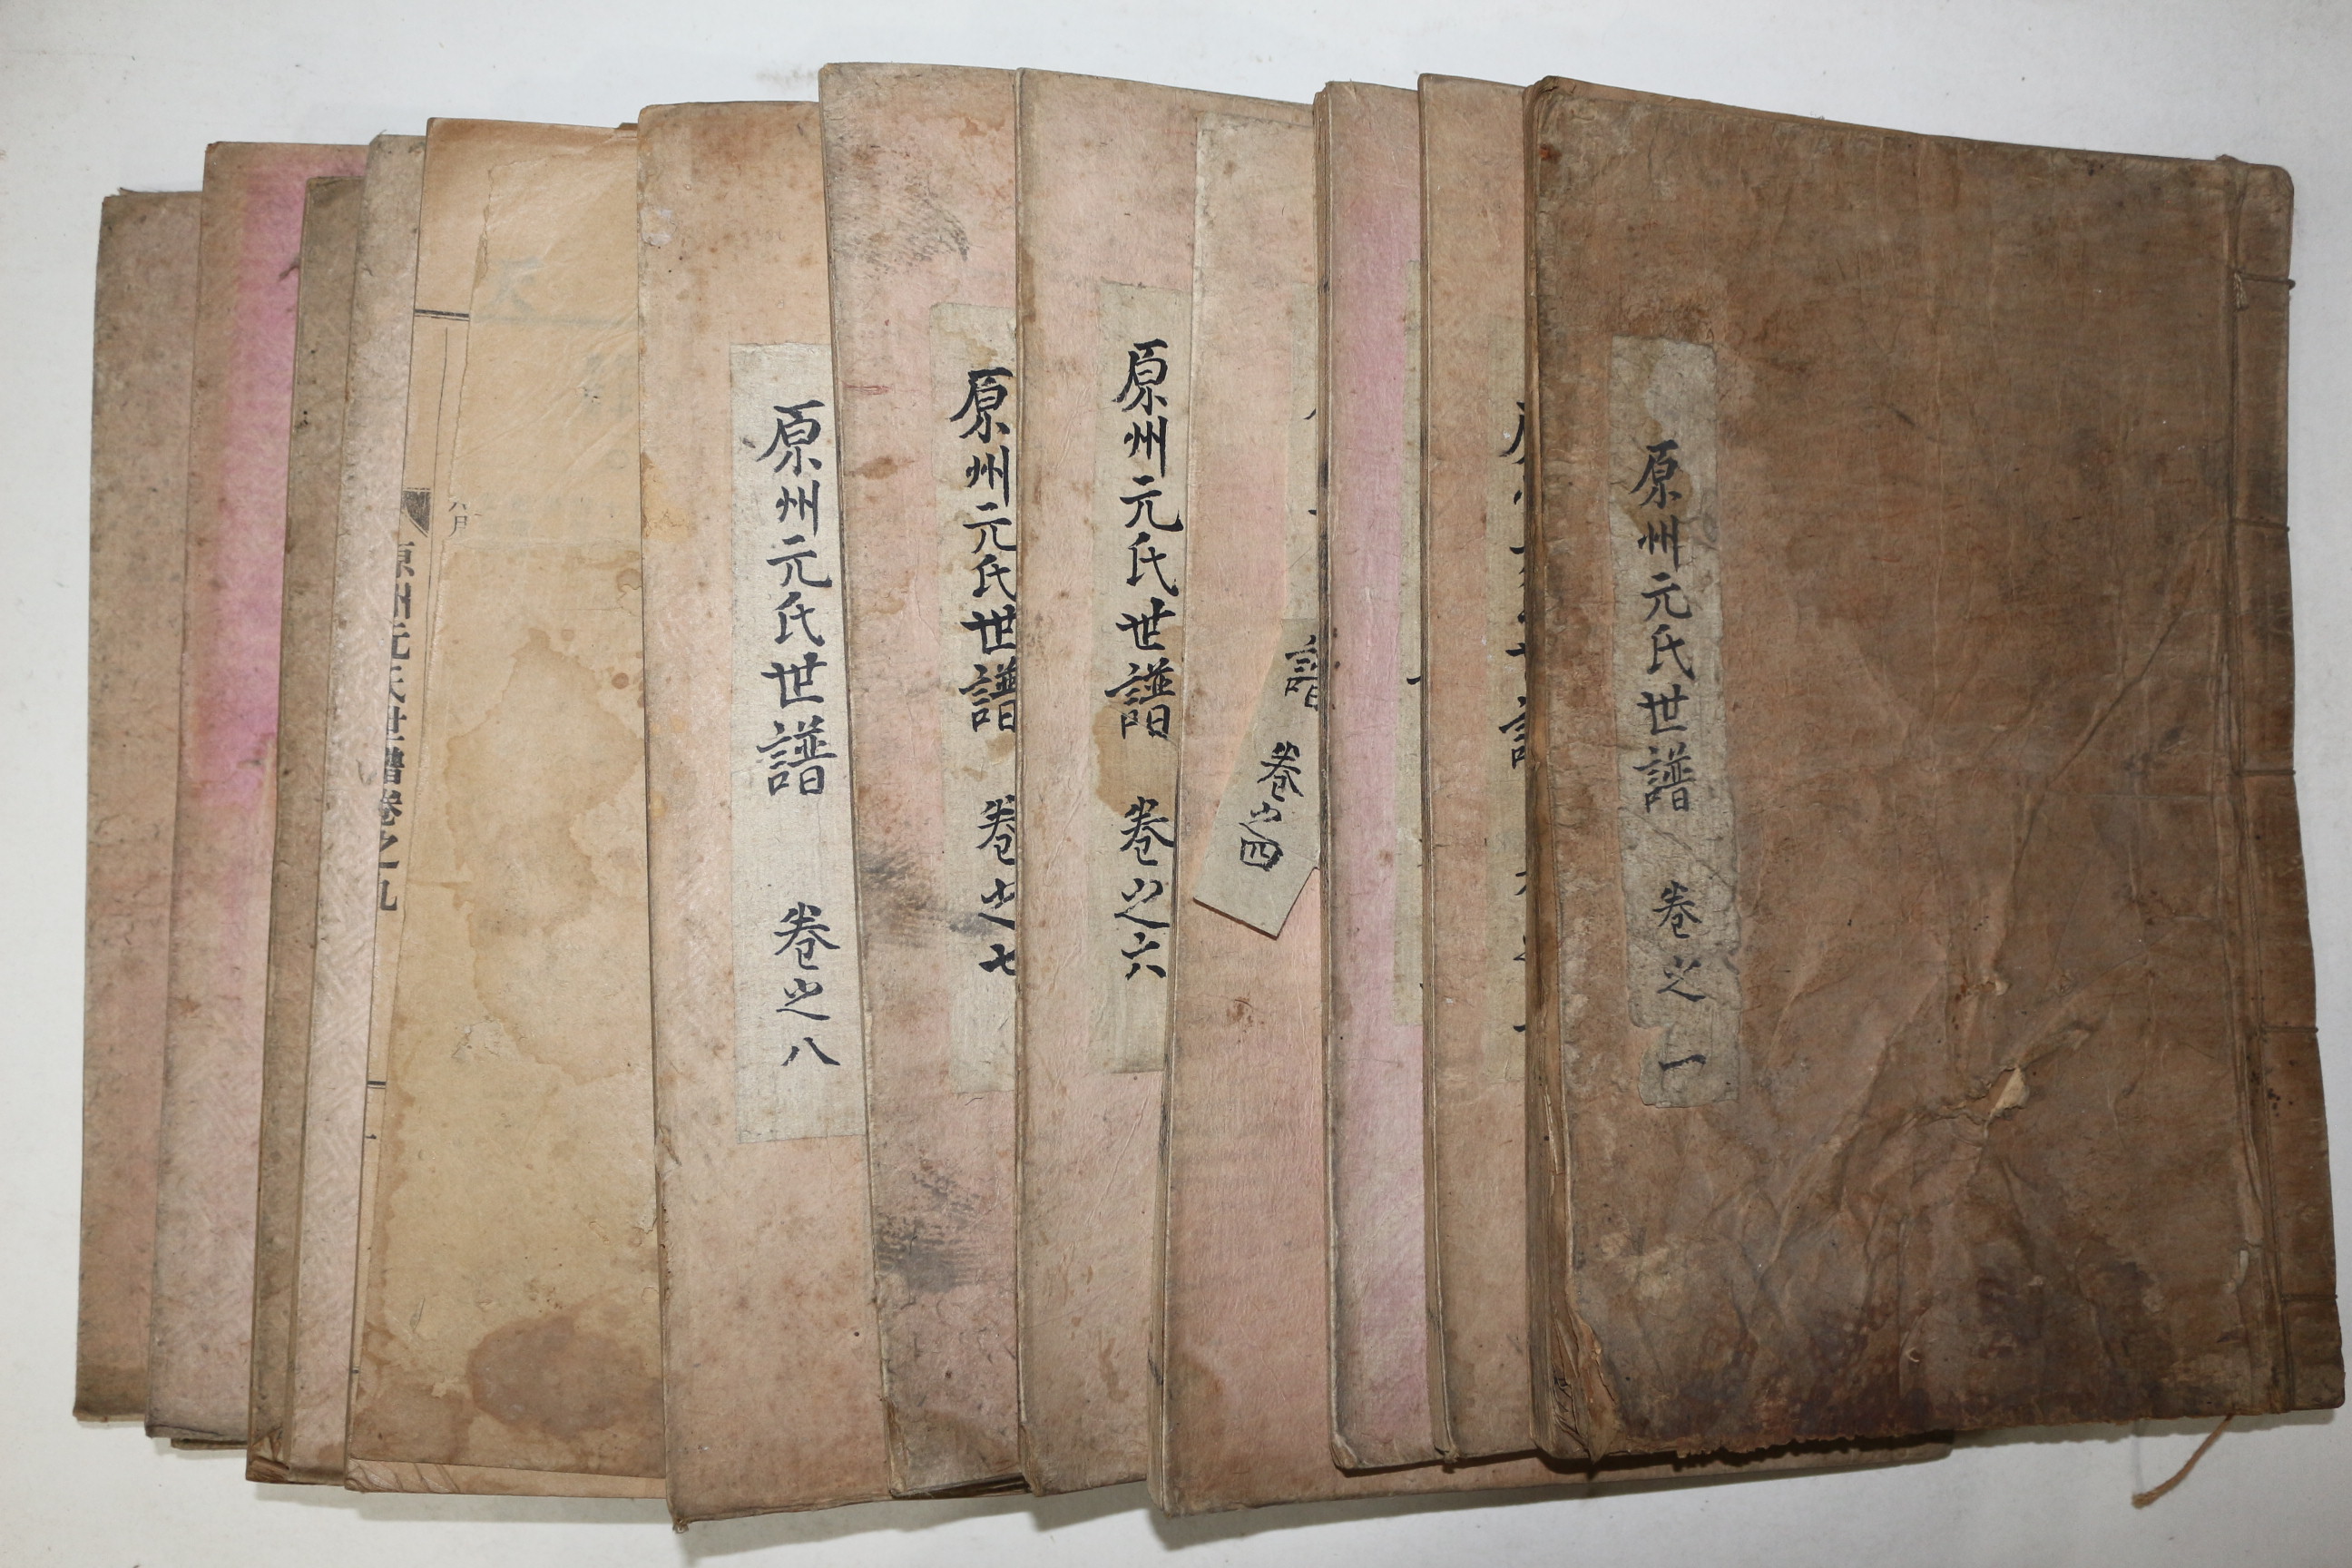 原州元氏世譜 卷之一
譜 卷之四
原州元氏世譜 卷之六
原州元氏世譜 卷之七
原州元氏世譜 卷之八
原州元氏世譜卷之九